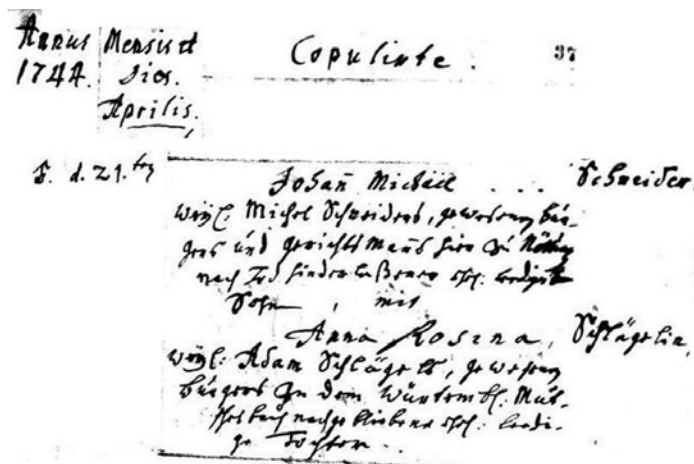 Annus Mensis et Copulirte. 37
1744. Dies.
Aprilis.
d. 21.ten Johañ Michael . . . Schneider,
weyl: Michel Schneiders, gewesenen bür-
gers und gerichts Manns hier zu
nach Tod hinderlaßener ehel: ledigter
Sohn, mit
Anna Rosina, Schlägelin,
weyl: Adam Schlägels, gewesenen
bürgers zu dem Würtembl: Mut-
schelbach nachgebliebene ehel: ledi-
ge Tochter.